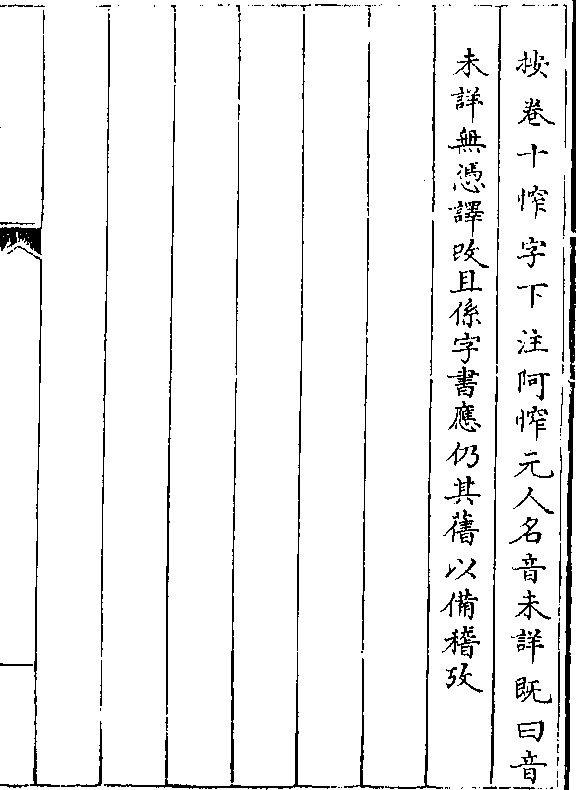 按卷十㤰字下注阿㤰元人名音未詳既曰音
未詳無憑譯改且係字書應仍其舊以備稽攷